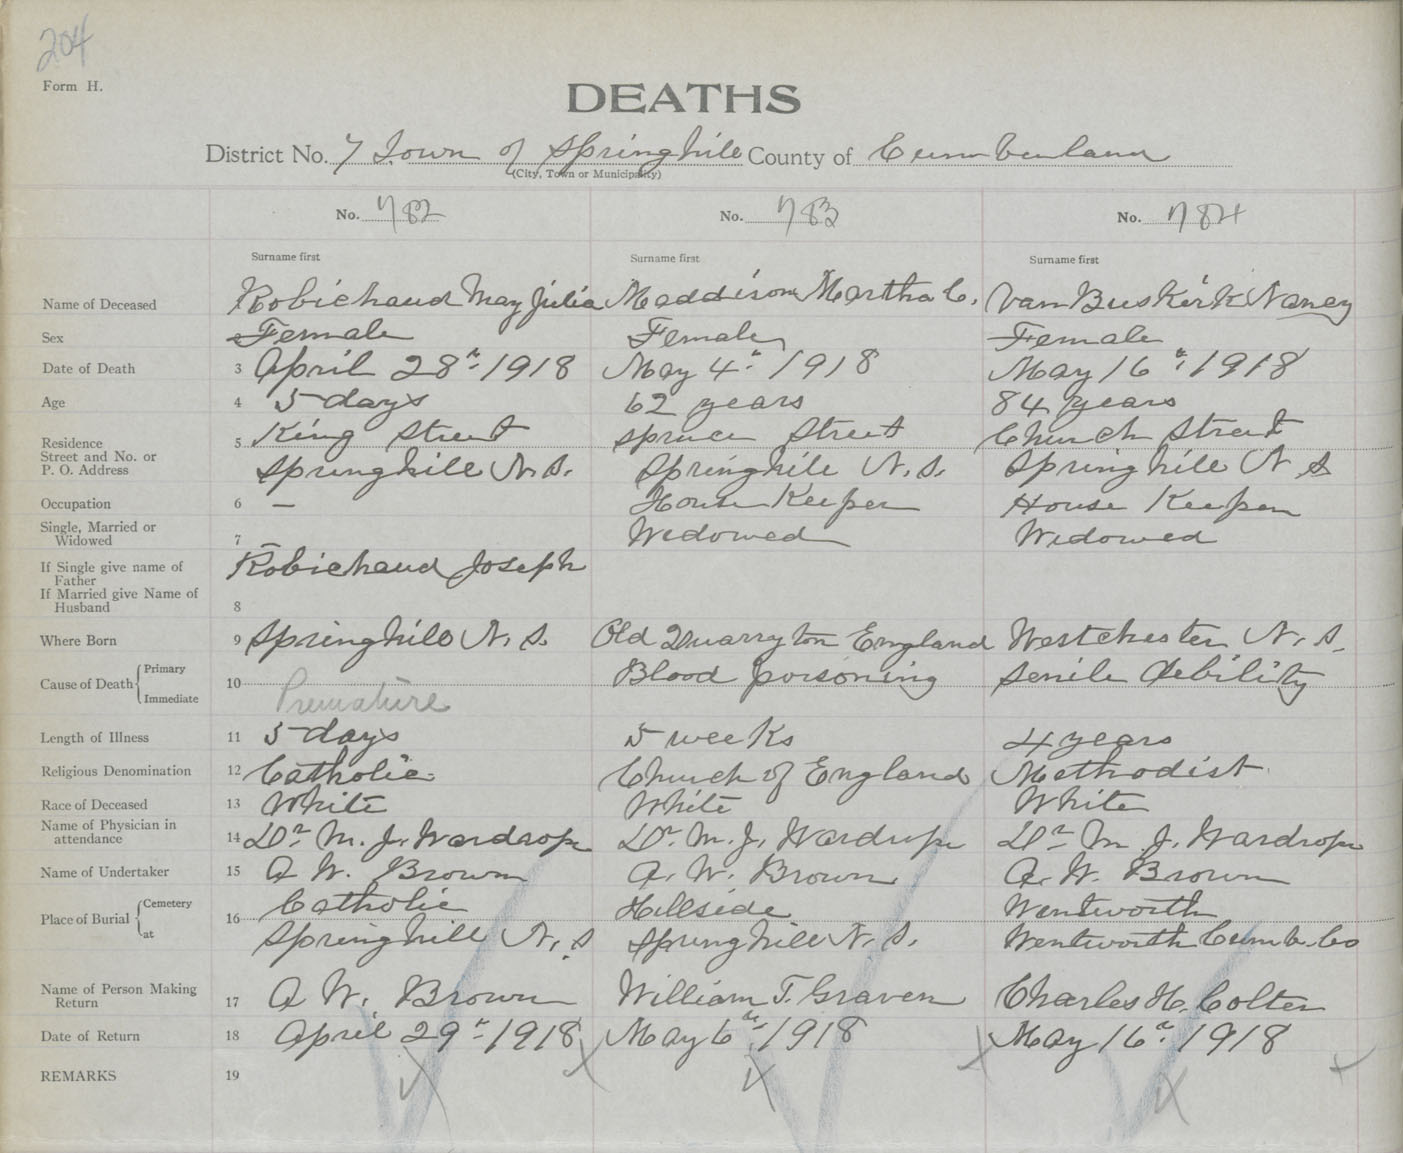 204
Form H.
DEATHS
District No. 7 Town of Springhill County of Cumberland
(City, Town or Municipality)
No. 782 No. 783 No. 784
Surname first Surname first Surname first
Name of Deceased Robichaud May Julia Maddison Martha C. Van Buskirk Nancy
Sex Female Female Female
Date of Death 3 April 28th 1918 May 4th 1918 May 16th 1918
Age 4 5 days 62 years 84 years
Residence 5 King Street Spruce Street Church Street
Street and No. or
P. O. Address Springhill N.S. Springhill N.S. Springhill N S
Occupation 6 — House Keeper House Keeper
Single, Married or
Widowed 7 Widowed Widowed
If Single give name of Robichaud Joseph
Father
If Married give Name of
Husband 8
Where Born 9 Springhill N.S. Old England Westchester N.S.
Cause of Death { Primary Blood poisoning Senile debility
10
Immediate Premature
Length of Illness 11 5 days 5 weeks 4 years
Religious Denomination 12 Catholic Church of England Methodist
Race of Deceased 13 White White White
Name of Physician in
attendance 14 Dr M. J. Wardrope Dr. M. J. Wardrope Dr M. J. Wardrope
Name of Undertaker 15 A W. Brown A. W. Brown A. W. Brown
Place of Burial { Cemetery 16 Catholic Hillside Wentworth
at Springhill N.S Springhill N.S. Wentworth Cumb. Co
Name of Person Making
Return 17 A W. Brown William T. Graven Charles H. Colter
Date of Return 18 April 29th 1918 May 6th 1918 May 16th 1918
REMARKS 19